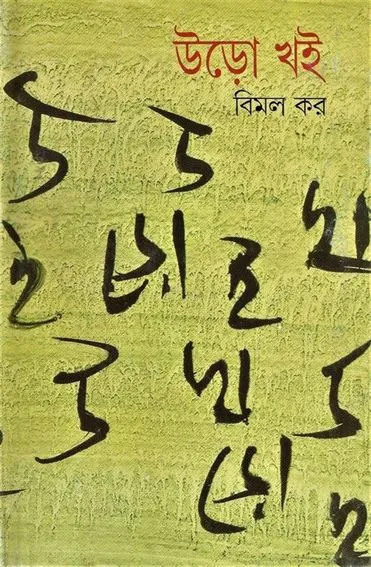 উড়ো খই
বিমল কর
উ উ
ই ড়ো ই খ
উ খ উ
ড়ো ই